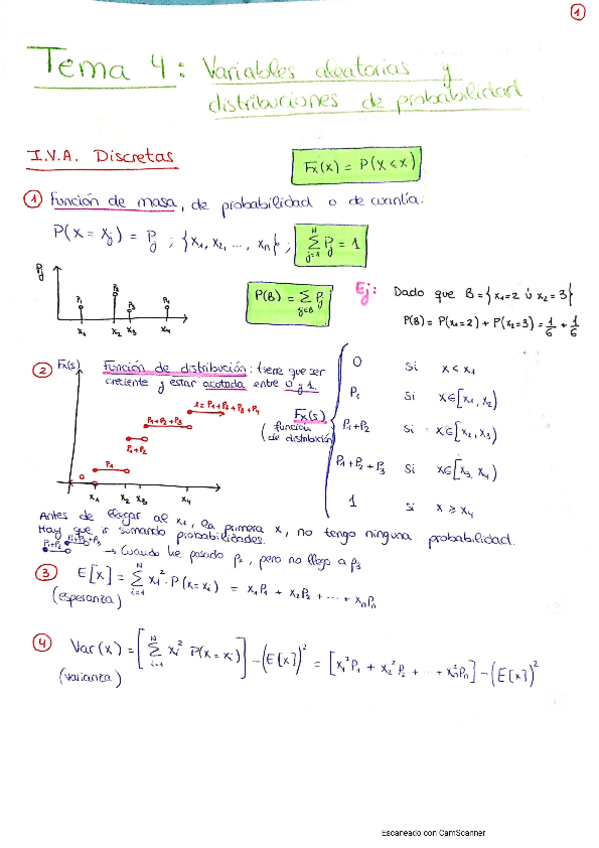 1
Tema 4: Variables aleatorias y
distribuciones de probabilidad
I.V.A. Discretas
Fx(x) = P(X ≤ x)
① Función de masa, de probabilidad o de cuantía:
P(X = xj) = Pj ; {x1, x2, ..., xn} ; N Σ j=1 Pj = 1
Pj
P1 P2 P3 P4
x1 x2 x3 x4
P(B) = Σ j∈B Pj
Ej: Dado que B = {x1=2 ú x2=3}
P(B) = P(x1=2) + P(x2=3) = 1/6 + 1/6
② Fx(s) Función de distribución: tiene que ser
creciente y estar acotada entre 0 y 1.
1 = P1+P2+P3+P4
P1+P2+P3
P1+P2
P1
0
x1 x2 x3 x4
Fx(s)
(función
de distribución)
0 si x < x1
P1 si x∈[x1, x2)
P1+P2 si x∈[x2, x3)
P1+P2+P3 si x∈[x3, x4)
1 si x ≥ x4
Antes de llegar al x1, la primera x, no tengo ninguna probabilidad.
Hay que ir sumando probabilidades.
P1+P2 P1+P2+P3
→ Cuando he pasado p2, pero no llego a p3
③ E[x] = N Σ i=1 xi · P(x=xi) = x1P1 + x2P2 + ... + xnPn
(esperanza)
④ Var(x) = [N Σ i=1 xi² P(x=xi)] - (E[x])² = [x1²P1 + x2²P2 + ... + xn²Pn] - (E[x])²
(varianza)
Escaneado con CamScanner